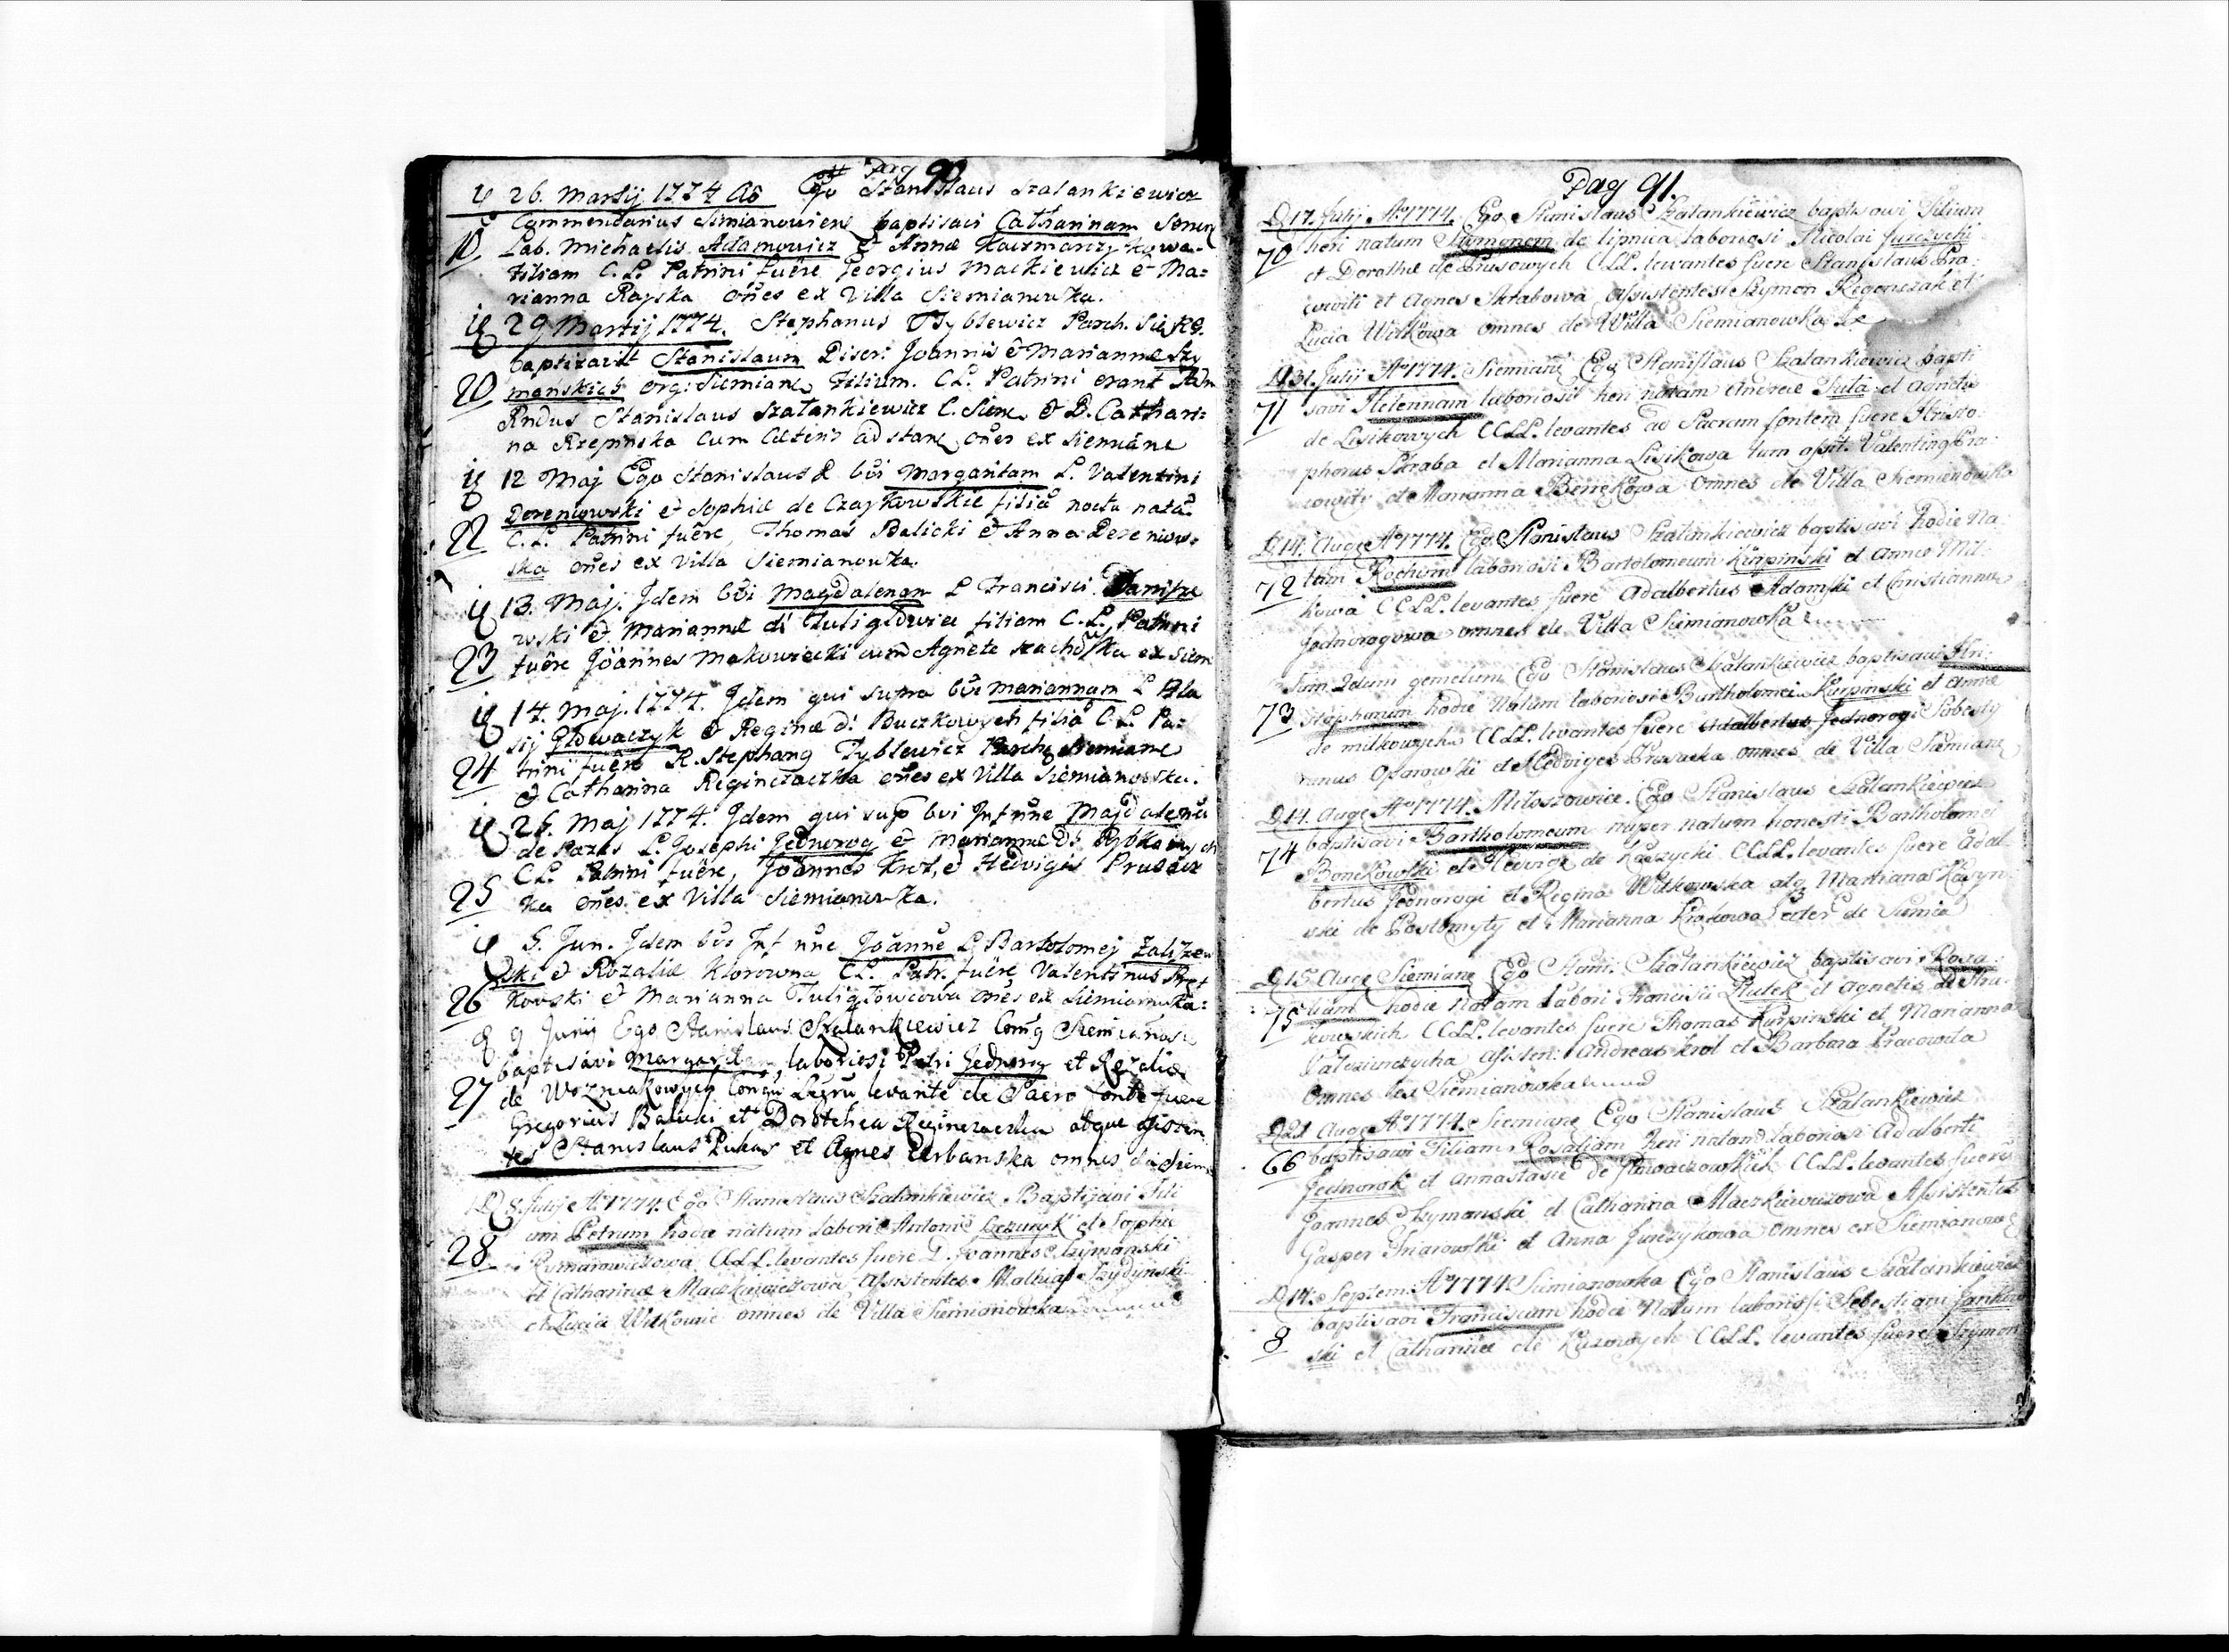 Pag 90
26. Martij 1774 Ao Ego Stanislaus Szatankiewicz
Commendarius Simianoviens baptisavi Catharinam
Lab. Michaelis Adamowicz & Annæ Kaczmarczykowa
filiam C.L. Patrini fuêre Georgius Mackiewicz & Ma=
rianna Rayska oñes ex Villa Siemianowka.
29 Martij 1774. Stephanus Tyblewicz Paroh.
baptizavit Stanislaum Discr: Joannis & Mariannæ Szy
manskich org: Siemiane Filium. C.L. Patrini erant Adm
20
Rndus Stanislaus Szatankiewicz C. Siem & D. Cathari=
na Rzepinska cum cæteris adstan oñes ex Siemiane
12 Maj Ego Stanislaus bvi Margaritam L. Valentini
Dereniowski & Sophiæ de Czaykowskie filiã nocte natã
22
C.L. Patrini fuêre, Thomas Balicki & Anna Dereniow=
ska oñes ex Villa Siemianowka.
13. Maj. Jdem bvi Magdalenam L Francisci
wski & Mariannæ di Tuligłowicz filiam C.L. Patrini
23
fuêre Joannes Makowiecki cum Agnete ex Siem
14. Maj. 1774. Jdem qui supra bvi Mariannam L Bla
sij Głowaczyk & Reginæ d: Buczkowych filiã C.L. Pa=
trini fuêre R. Stephang Tyblewicz Paroh Siemiane
24
& Catharina Reginczaczka oñes ex Villa Siemianowska.
25. Maj 1774. Jdem qui sup bvi Jnf nñe Magdalenã
de Pazes L. Josephi Jednorog & Mariannæ D:
C.L. Patrini fuêre, Joannes Krol, & Hedvigis Prusacz
25
ka oñes ex Villa Siemianowka.
5. Jun. Jdem bvi Jnf nñe Joanne L Bartolomej Zalizew
ski & Rozaliæ Klorowna C.L. Patr. fuêre Valentinus
26
kowski & Marianna Tuligłowcowa oñes ex Siemianowka:
9 Junij Ego Stanislaus Szatankiewicz Comg Siemianos
baptisavi Margaritam, laboriosi Petri Jednorog et Rozaliæ
27
de Wozniakowych Coniu Legru levante de Sacro fonte fuere
Gregorius Balicki et Dorothea Reginczaczka atque assisten
tes Stanislaus Pukas et Agnes Urbanska omnes de Siem
D 8 Julij Ao 1774. Ego Stanislaus Szatankiewicz Baptisavi Fili
um Petrum hodie natum labori Antonii et Sophiæ
28
Rymarowiczowa CCLL. levantes fuere D. Joannes Szymanski
et Catharina Mackiewiczowa Assistentes Mathias Szydynski
et Lucia Witkowic omnes de Villa Siemianowka
Pag 91.
D 17. Julij Ao 1774. Ego Stanislaus Szatankiewicz baptisavi Filium
70
heri natum Szymonem de lipnica laboriosi Nicolai Jurczycki
et Dorothæ de Prusowych CCLL. levantes fuere Stanislaus Pra:
cowiti et Agnes Skrabowa Assistentes Szymon Regenczak et
Lucia Witkowa omnes de Villa Siemianowka
D 31. Julij Ao 1774. Siemiane Ego Stanislaus Szatankiewicz bapti
71
savi Helennam laboriosi heri natam Andreæ Tuta et Agnetis
de Lisikowych CCLL. levantes ad Sacram fontem fuere Hristo:
phorus Skraba et Marianna Lisikowa tum assist. Valenting Pra:
cowity et Marianna Beniekowa omnes de Villa Siemianowka
D 14. Aug Ao 1774. Ego Stanislaus Szatankiewicz baptisavi hodie na
72
tum Rochum laboriosi Bartolomeum Kurpinski et Annæ Mil=
kowa CCLL. levantes fuere Adalbertus Adamski et Christianna
Jednorogowa omnes de Villa Siemianowka
Tum 2dum gemelum Ego Stanislaus Szatankiewicz baptisavi Hri:
73
stophorum hodie natum laboriosi Bartholomei Kurpinski et Annæ
de Milkowych CCLL. levantes fuere Adalbertus Jednorogi Sobesty
Oparowski et Hedviges Prusaczka omnes de Villa Siemiane
D 14. Aug Ao 1774. Miłoszowice. Ego Stanislaus Szatankiewicz
baptisavi Bartholomeum nuper natum honesti Bartholomei
74
Bonikowski et Hedvige de Kaszycki CCLL. levantes fuere Adal
bertus Jednorogi et Regina Witkowska atq
ski de Postomyty et Marianna Krokowa de Siemia
D 15 Aug Siemiane Ego Stani: Szatankiewicz baptisavi Roza:
75
liam hodie natam labori Francisci Rutek et Agnetis de Stra:
kowskich CCLL. levantes fuere Thomas Kurpinski et Marianna
Assisten: Andreas Krol et Barbara Pracowita
Omnes ex Siemianowka
D 21 Aug Ao 1774. Siemiane Ego Stanislaus Szatankiewicz
66
baptisavi Filiam Rosaliam heri natam laboriosi Adalberti
Jednorok et Annastasiæ de Głowaczowskich CCLL. levantes fuere
Joannes Szymanski et Catharina Maczkiewiczowa Assistentes
Gasper et Anna Jurczykowa omnes ex Siemianow
D 14. Septem. Ao 1774 Siemianowka Ego Stanislaus Szatankiewicz
baptisavi Franciscum hodie natum laboriosi Sebestiani Jankow
8
ski et Catharinæ de Kuzowych CCLL. levantes fuere Szymon